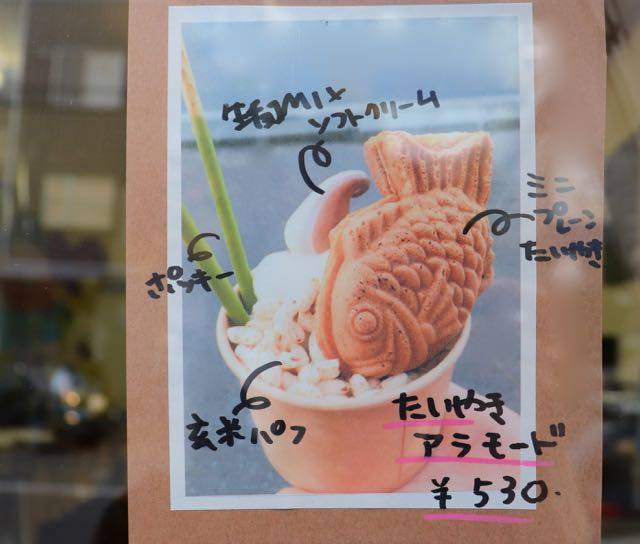 生チョコMIX
ソフトクリーム
ミニ
プレーン
たいやき
ポッキー
玄米パフ
たいやき
アラモード
¥530.